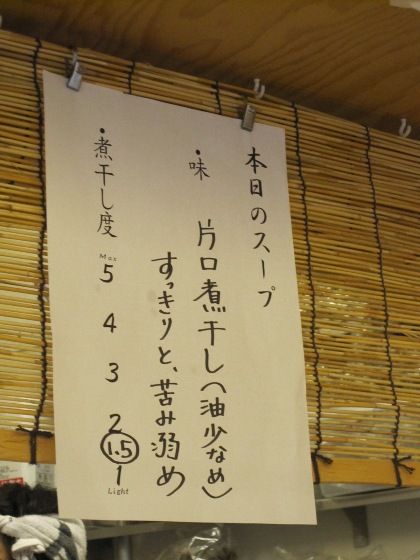 本日のスープ
・味
片口煮干し(油少なめ)
すっきりと、苦み溺め
・煮干し度
Max
5
4
3
2
1.5
1
Light